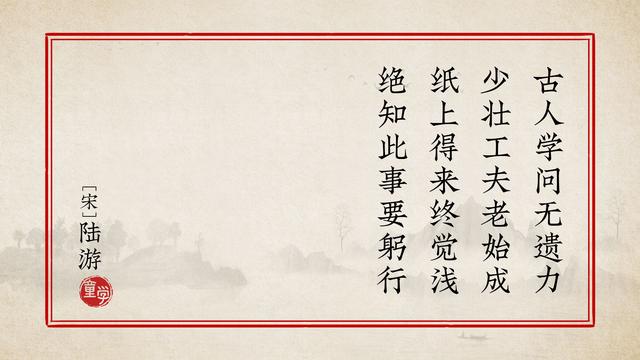 古人学问无遗力
少壮工夫老始成
纸上得来终觉浅
绝知此事要躬行
[宋]陆游
童学